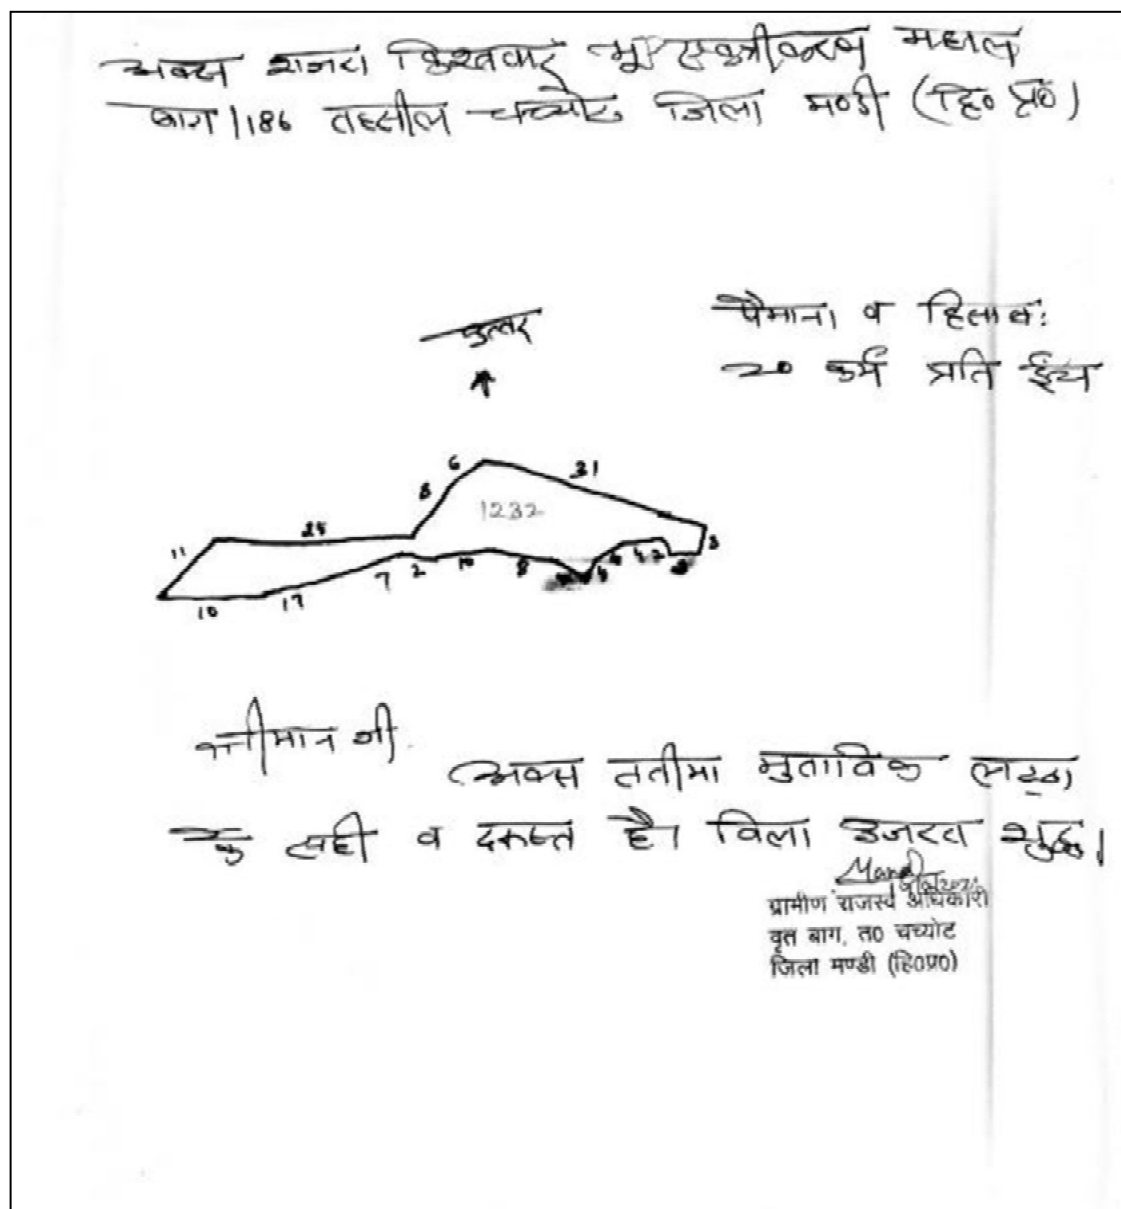 अक्स शजरा किश्तवार भू एकत्रीकरण महाल
बाग/186 तहसील चच्योट जिला मण्डी (हि० प्र०)
उत्तर
पैमाना व हिसाब:
20 कर्म प्रति ईंच
6
31
8
1232
25
11
3
7
2
10
8
10
17
श्रीमान जी
अक्स ततीमा मुताबिक लट्ठा
के सही व दरुस्त है। बिला उजरत शुद्ध।
ग्रामीण राजस्व अधिकारी
वृत बाग, त० चच्योट
जिला मण्डी (हि०प्र०)